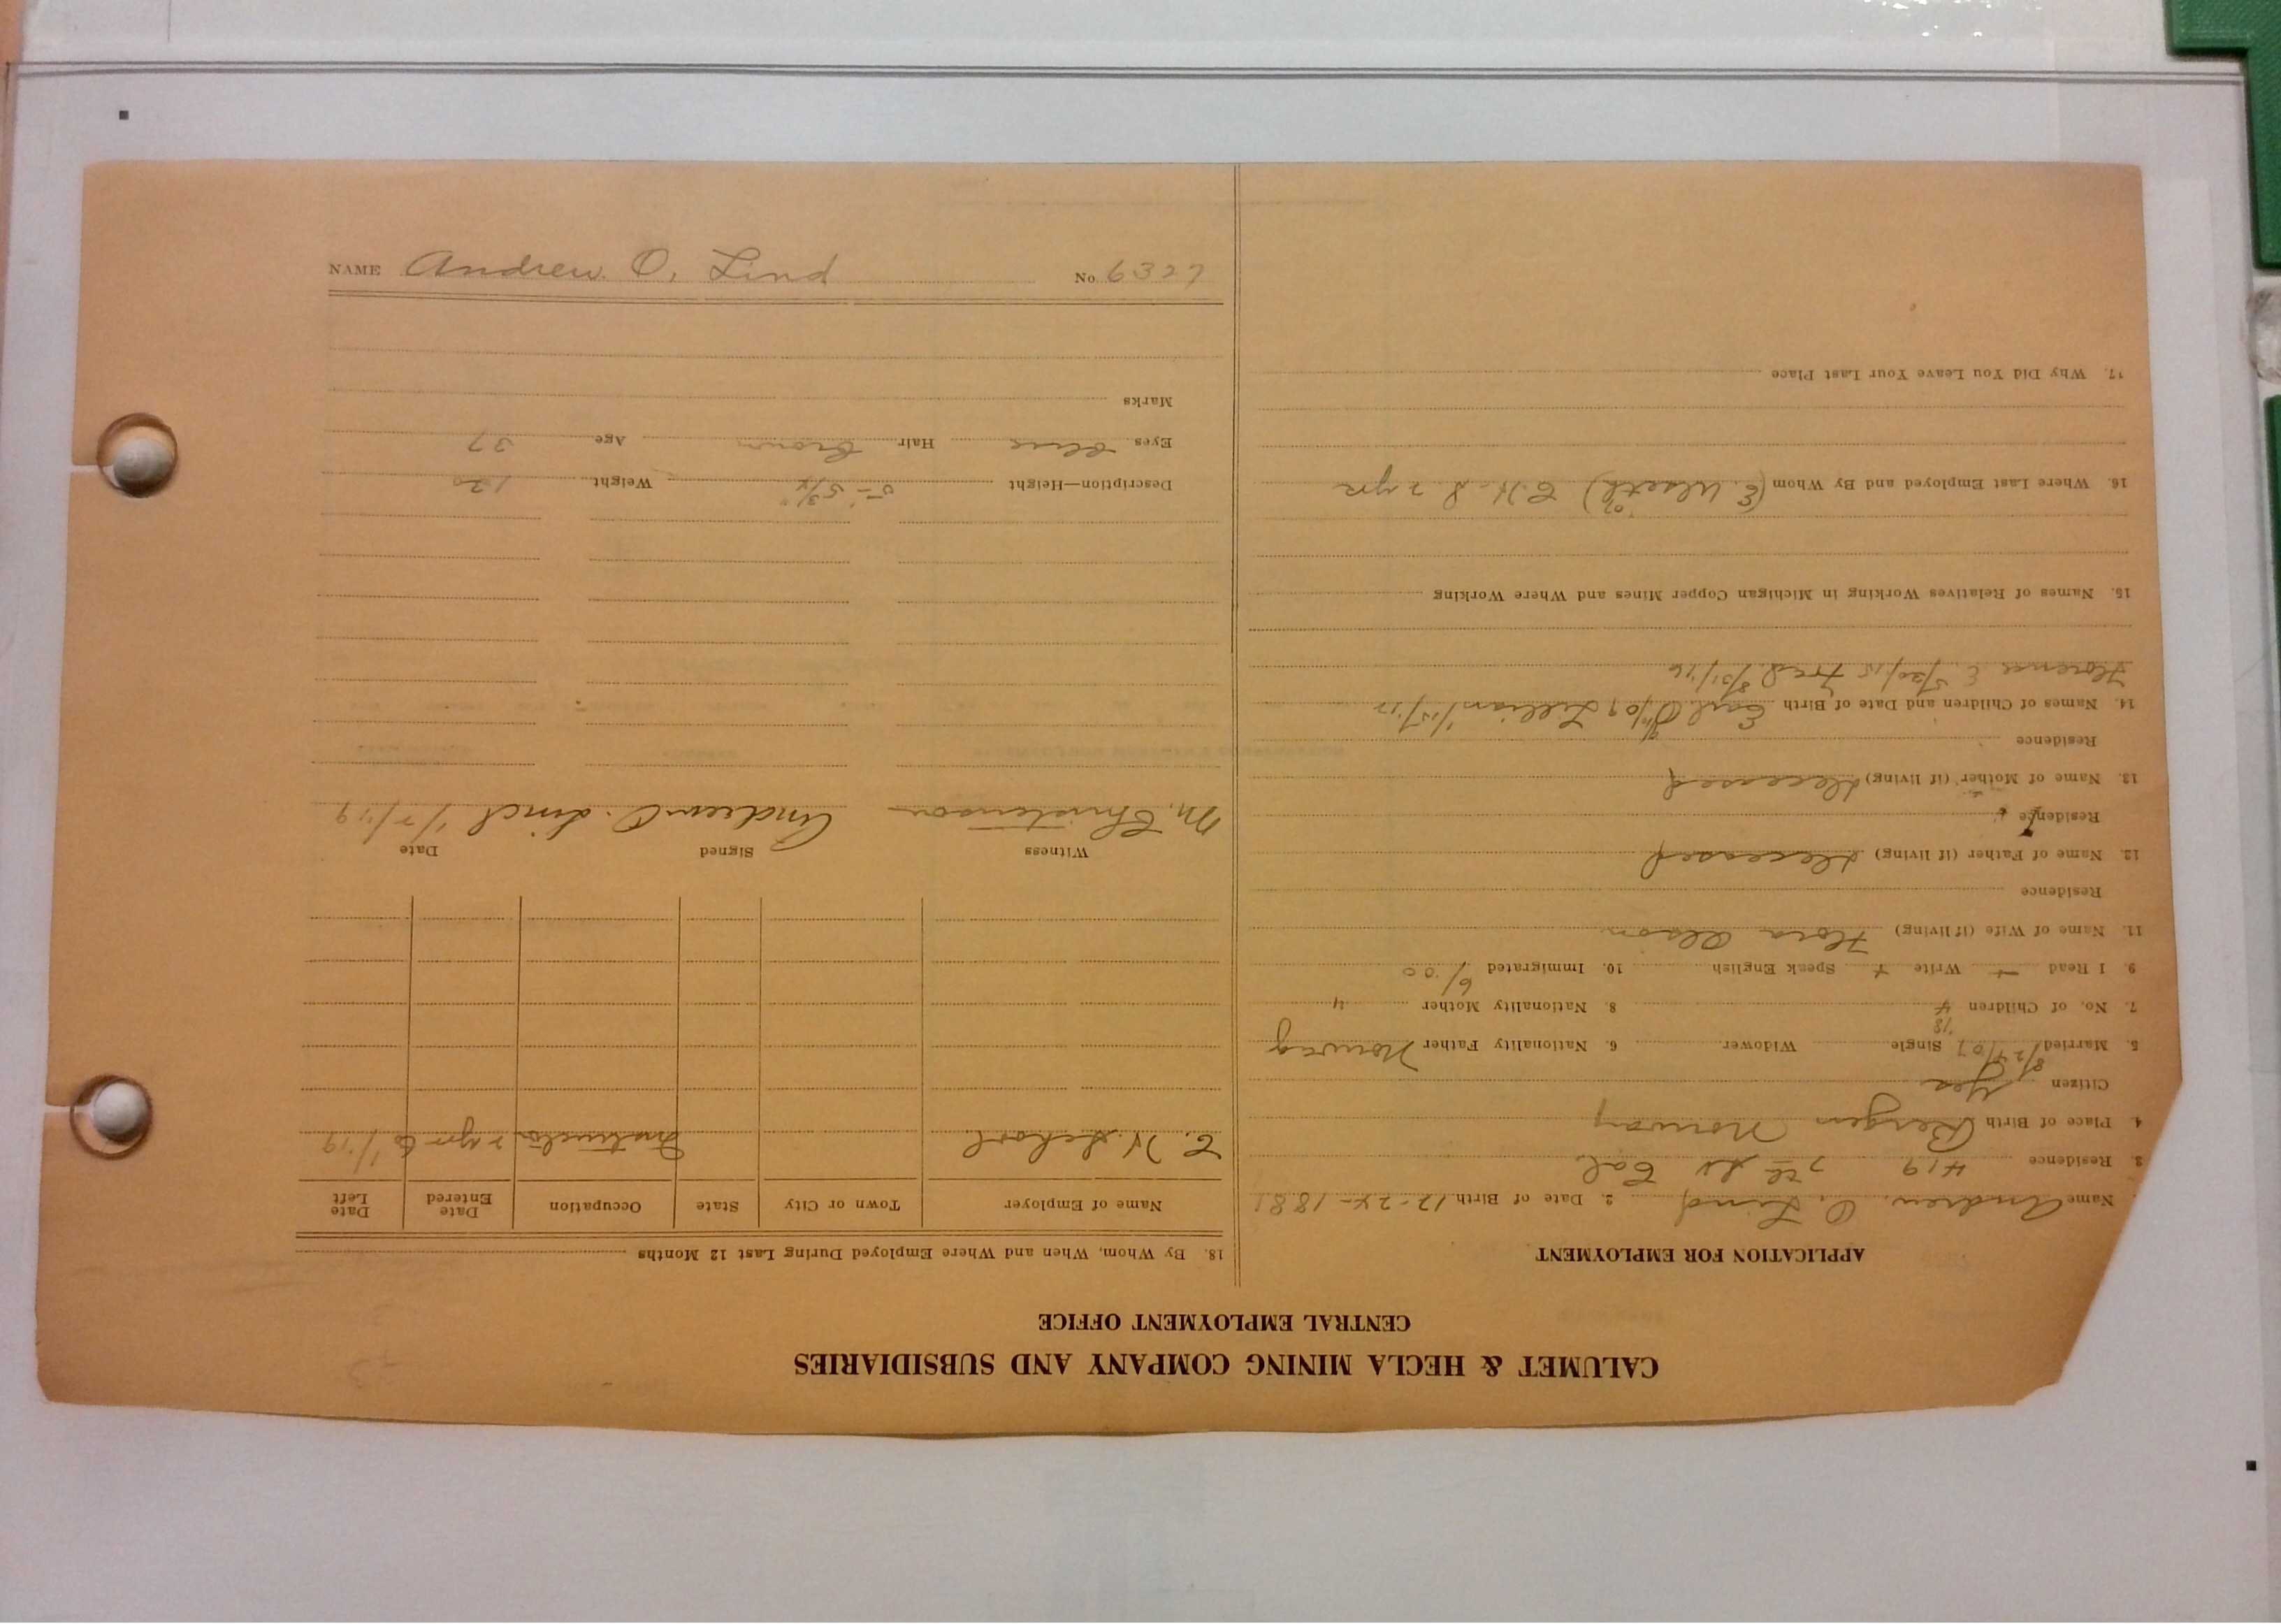 CALUMET & HECLA MINING COMPANY AND SUBSIDIARIES
CENTRAL EMPLOYMENT OFFICE
APPLICATION FOR EMPLOYMENT
Name Andrew O. Lind 2. Date of Birth 12-24-1881
3. Residence 419 7th St Cal.
4. Place of Birth Bergen Norway
Citizen Yes
5. Married 8/24/07 Single Widower 6. Nationality Father Norway
7. No. of Children 4 8. Nationality Mother "
9. I Read + Write + Speak English 10. Immigrated 6/00
11. Name of Wife (if living) Flora Olson
Residence
12. Name of Father (if living) deceased
Residence
13. Name of Mother (if living) deceased
Residence
14. Names of Children and Date of Birth Earl O. Lillian
Florence E 5/20/15 Fred 8/31/16
15. Names of Relatives Working in Michigan Copper Mines and Where Working
16. Where Last Employed and By Whom C.H.S 2 yrs
17. Why Did You Leave Your Last Place
18. By Whom, When and Where Employed During Last 12 Months
Name of Employer Town or City State Occupation Date Entered Date Left
C. H. School 2 yrs 1/19
Witness Signed Date
M. Christenson Andrew O. Lind 1/7/19
Description—Height 5-5 3/4" Weight 130
Eyes blue Hair brown Age 37
Marks
NAME Andrew O. Lind No. 6327